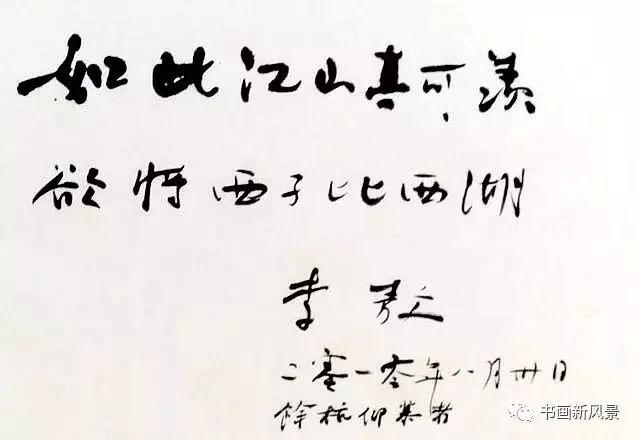 如此江山真可羡
欲将西子比西湖
李敖
二零一零年八月卅日
馀杭仰慕者
书画新风景